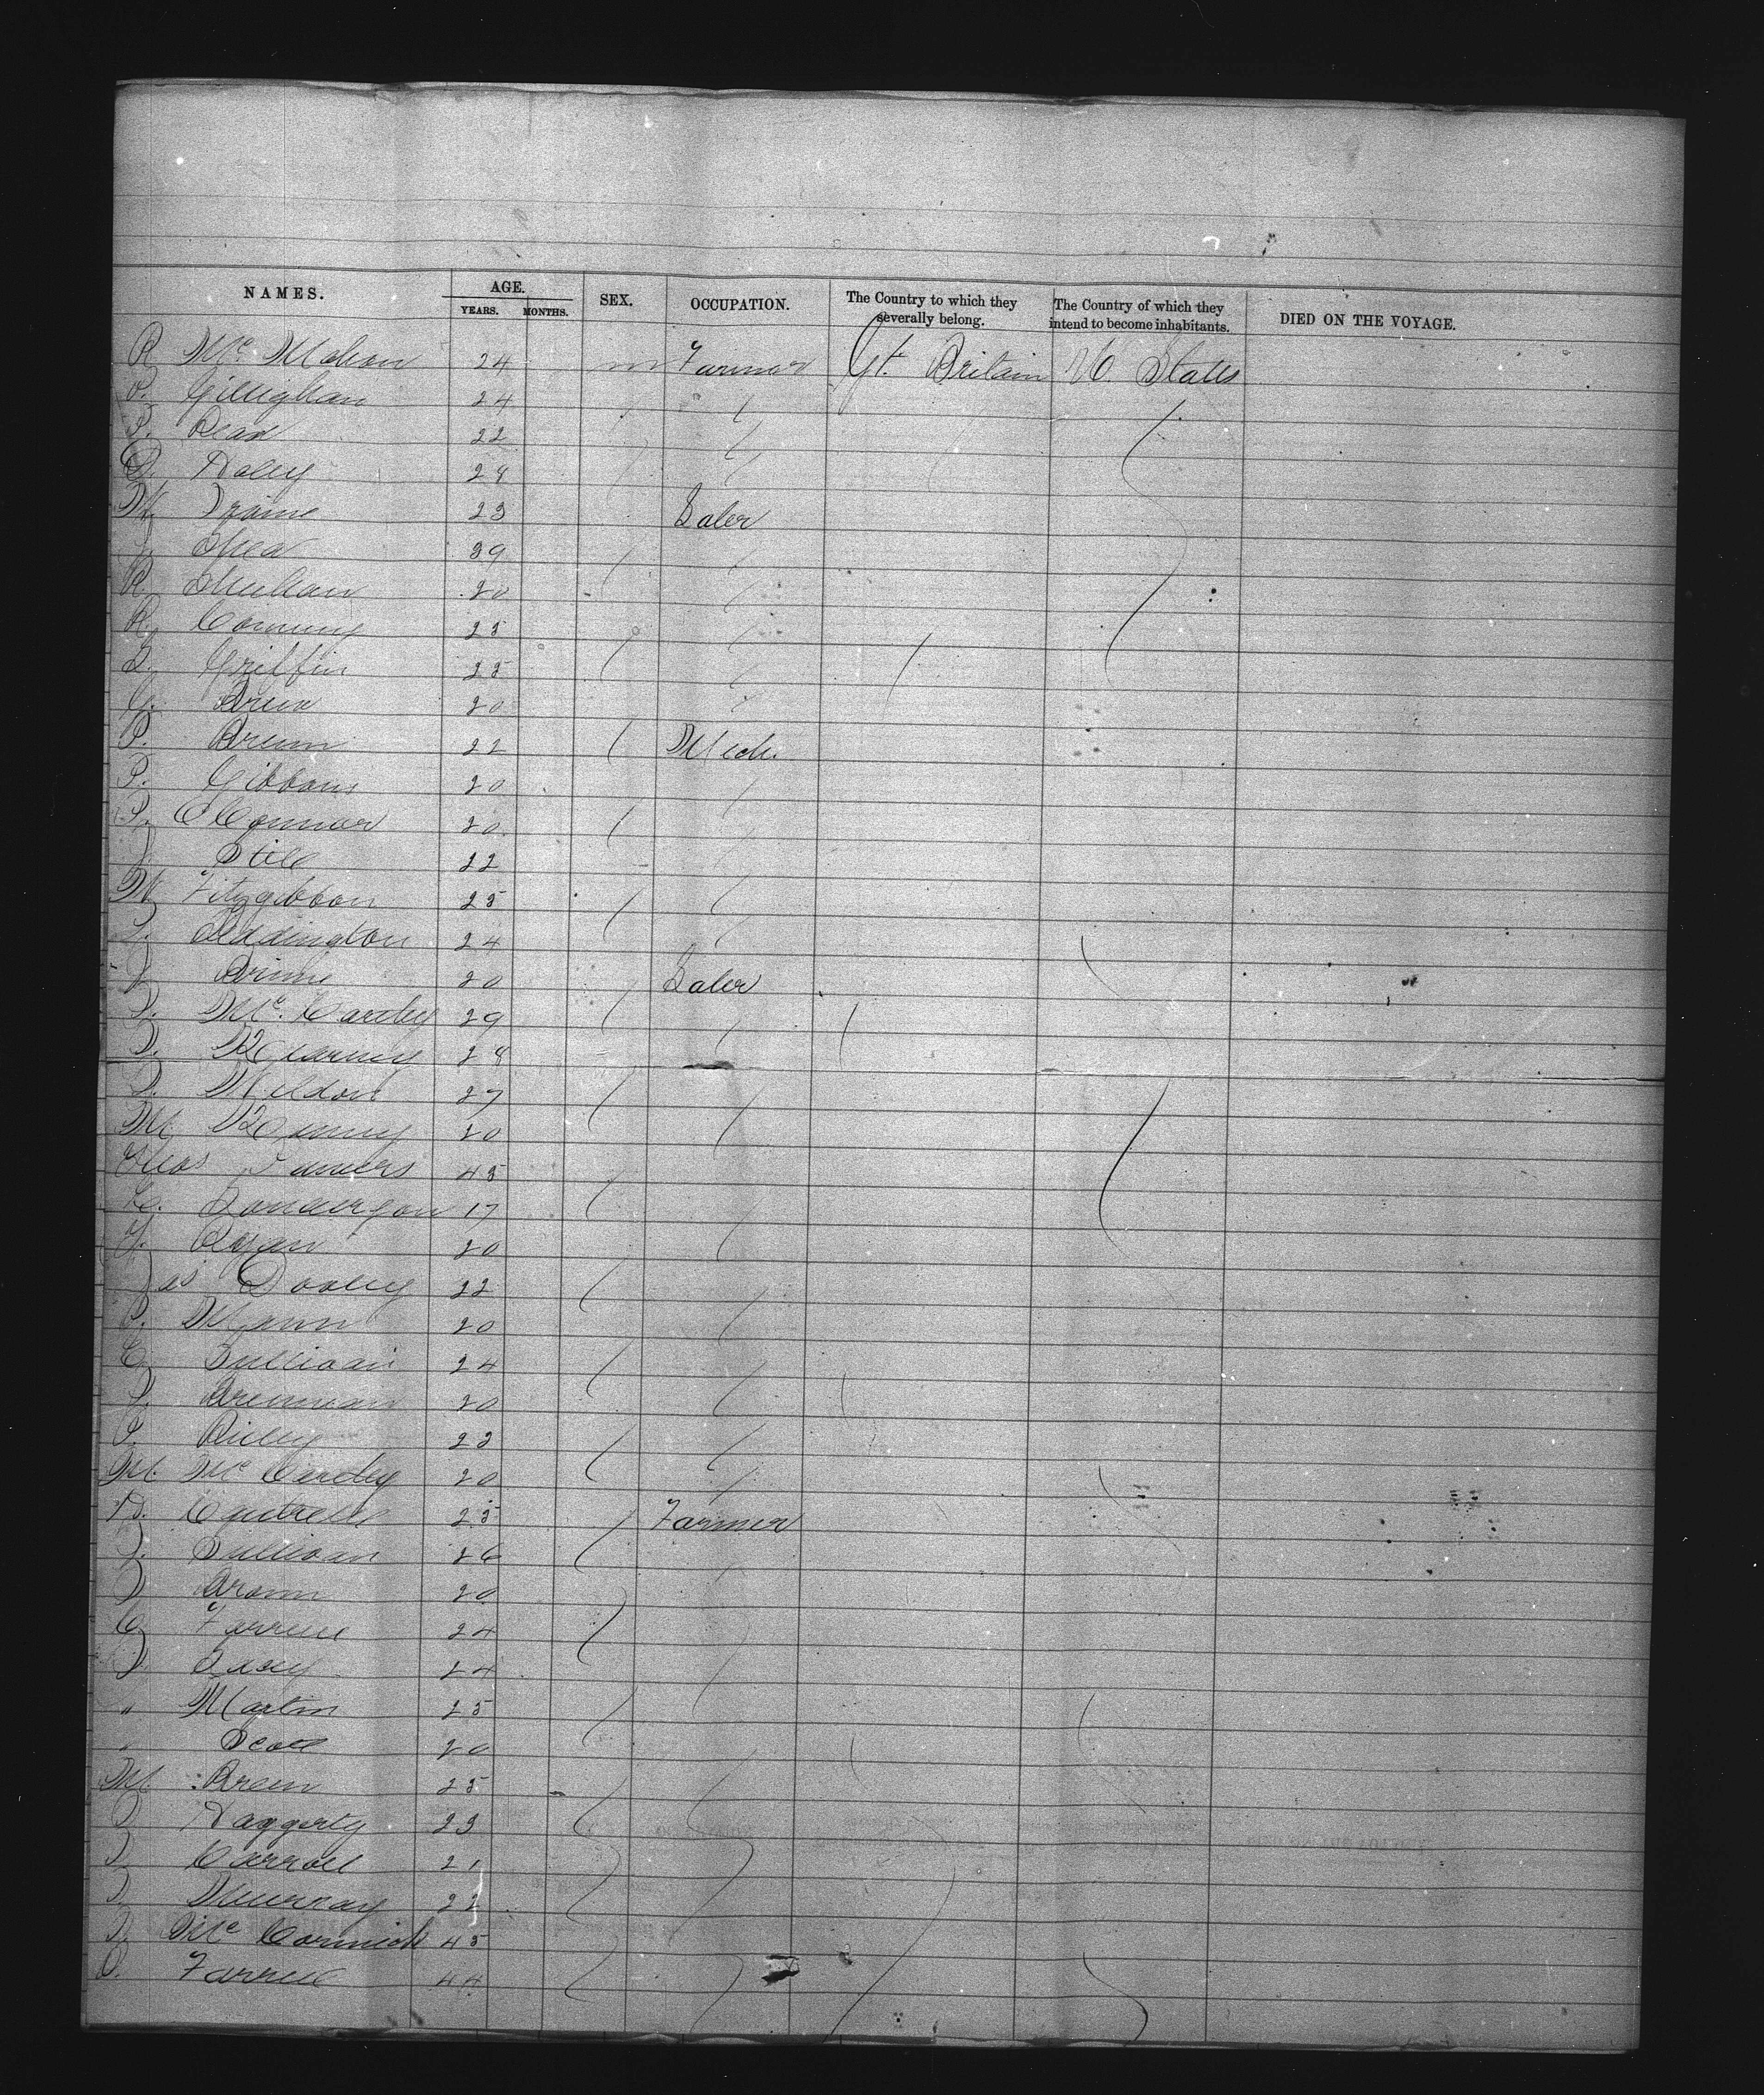 NAMES. AGE. SEX. OCCUPATION. The Country to which they severally belong. The Country of which they intend to become inhabitants. DIED ON THE VOYAGE.
YEARS. MONTHS.
R Mc Mahon 24 m Farmer Gt. Britain U. States
P. Gillighan 24
P. 22
D. Haley 28
M 23 Labor
J Shea 39
R 20
R. 25
D. Griffin 25
G. Breen 20
P. Breen 22 Mech.
P. Gibbons 20
P. OConnor 20
J. 22
M Fitzgibbon 25
J. Eddington 24
J 20 Labor
J. Mc. Carthy 29
J. Kearney 28
J. Weldon 27
M Kenny 20
Thos 45
C. 17
J. Ryan 20
Jas Dooley 22
P. Mann 20
C Sullivan 24
J. Brennan 20
P. Rielly 22
M. Mc Carthy 20
H. Cantrell 25 Farmer
J. Sullivan 26
J Brown 20
C Farrell 24
J. Casey 24
" Martin 25
" Scott 20
M. Breen 25
J Haggerty 23
J Carroll 21
J Murray 22
J. Mc Cormick 45
O. Farrell 44